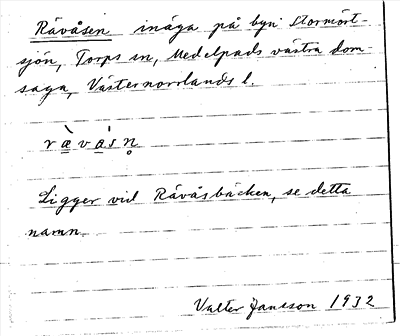 Rävåsen inäga på byn Stormört-
sjön, Torps sn, Medelpads västra dom-
saga, Västernorrlands l.
rä̀vásn̥
Ligger vid Rävåsbäcken, se detta
namn.
Valter Jansson 1932